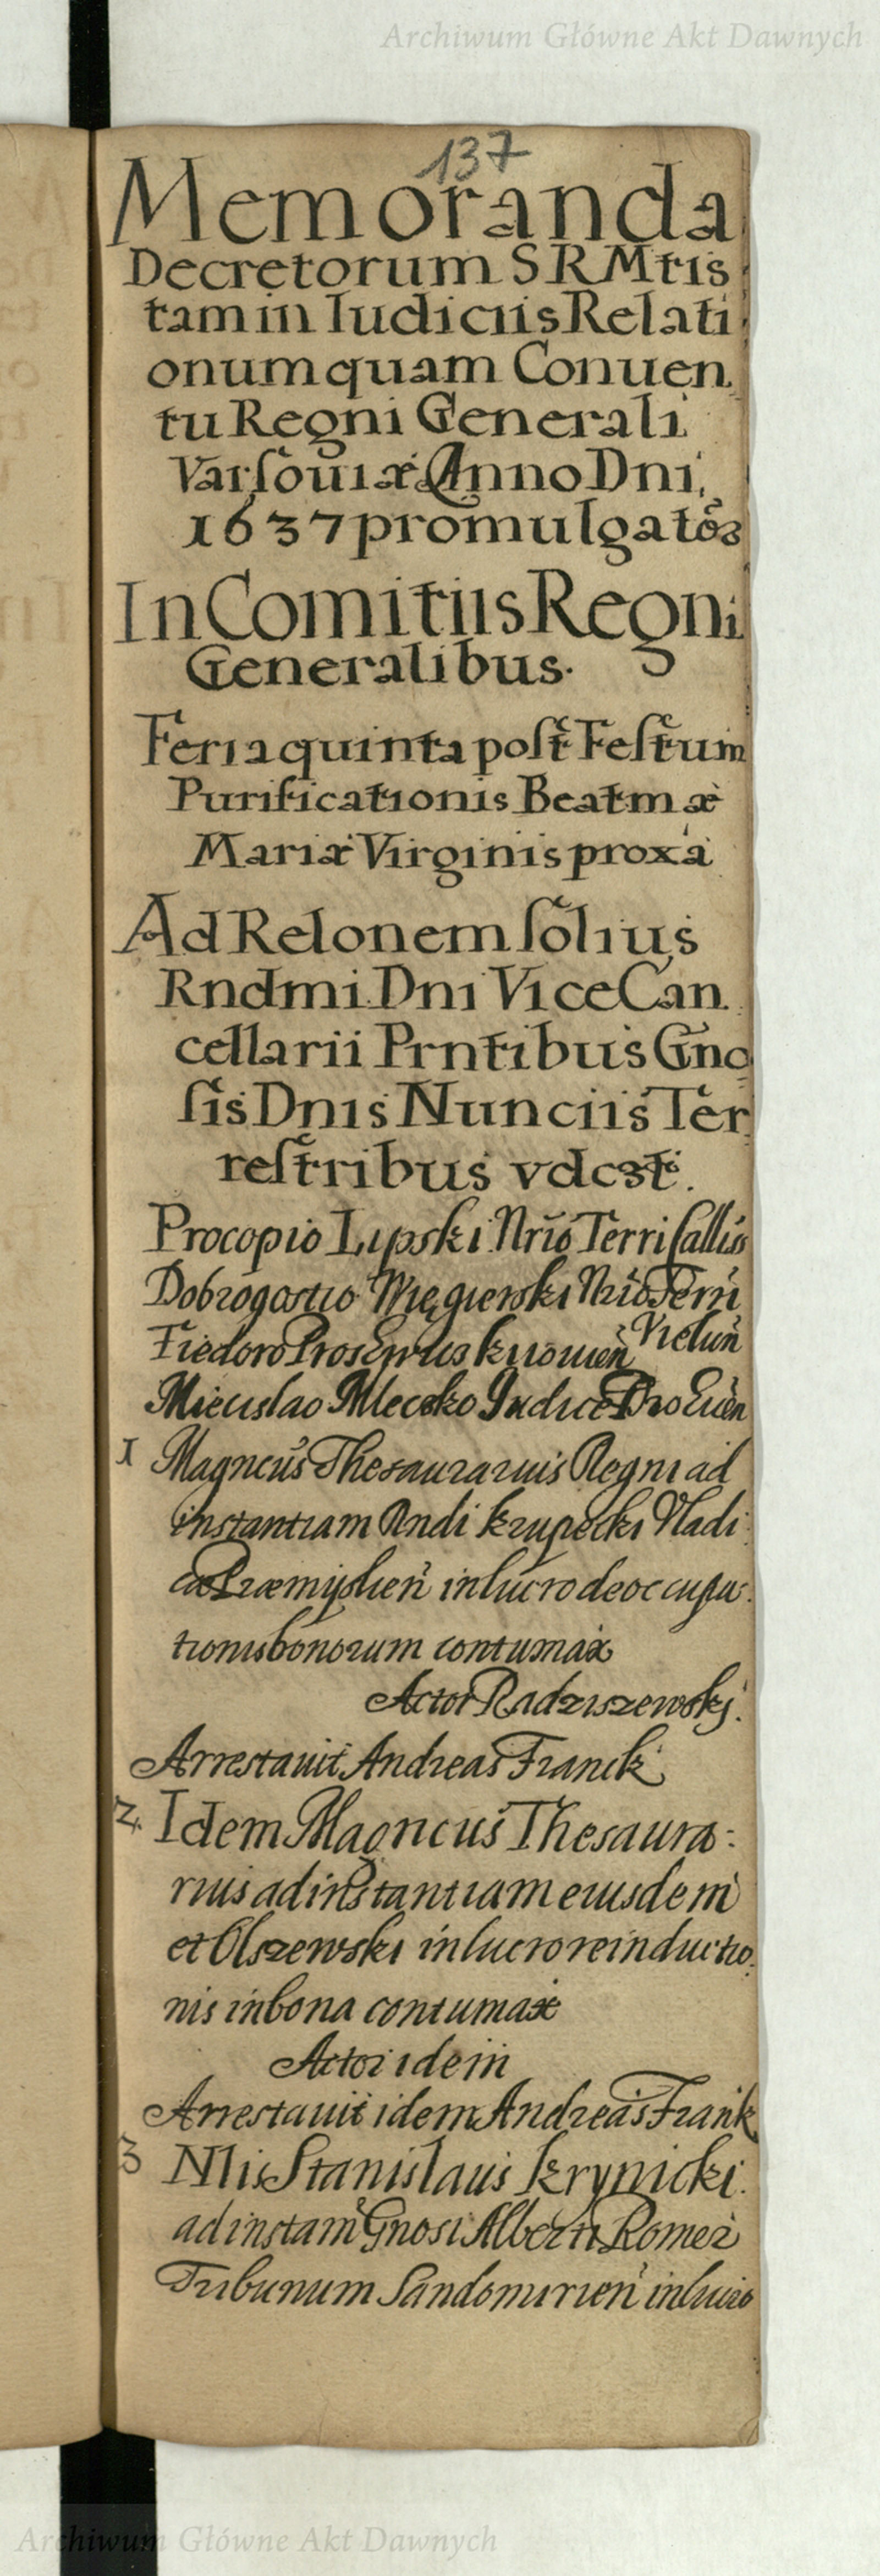 Archiwum Główne Akt Dawnych
137
Memoranda
Decretorum S R Mtis
tam in Iudiciis Relati
onum quam Conuen
tu Regni Generali
Varſouiæ Anno Dni
1637 promulgatoꝝ
In Comitiis Regni
Generalibus.
Feria quinta poſt Feſtum
Purificationis Beatmæ
Mariæ Virginis proxa
Ad Relonem ſolius
Rndmi Dni Vice Can
cellarii Prntibus Gno
ſis Dnis Nunciis Ter
reſtribus vdcꝫt.
Procopio Lipski Nrio Terri
Dobrogostio Węgierski Nrio Terri
Vielun
Fiedoro kiiouien
Miecislao Mleczko Iudice
1 Magncus Thesaurarius Regni ad
instantiam Rndi krupecki Vladi
cæ Præmyslien in lucro de occupa
tionis bonorum contumax
Actor Radziszewski.
Arrestauit Andreas Franck
2 Idem Magncus Thesaura:
rius ad instantiam eiusdem
et Olszewski in lucro reinductio
nis in bona contumax
Actor idem
Arrestauit idem Andreas Frank
3 Nlis Stanislaus krynicki
ad instam Gnosi Alberti Romer
Tribunum Sandomirien in lucro
Archiwum Główne Akt Dawnych